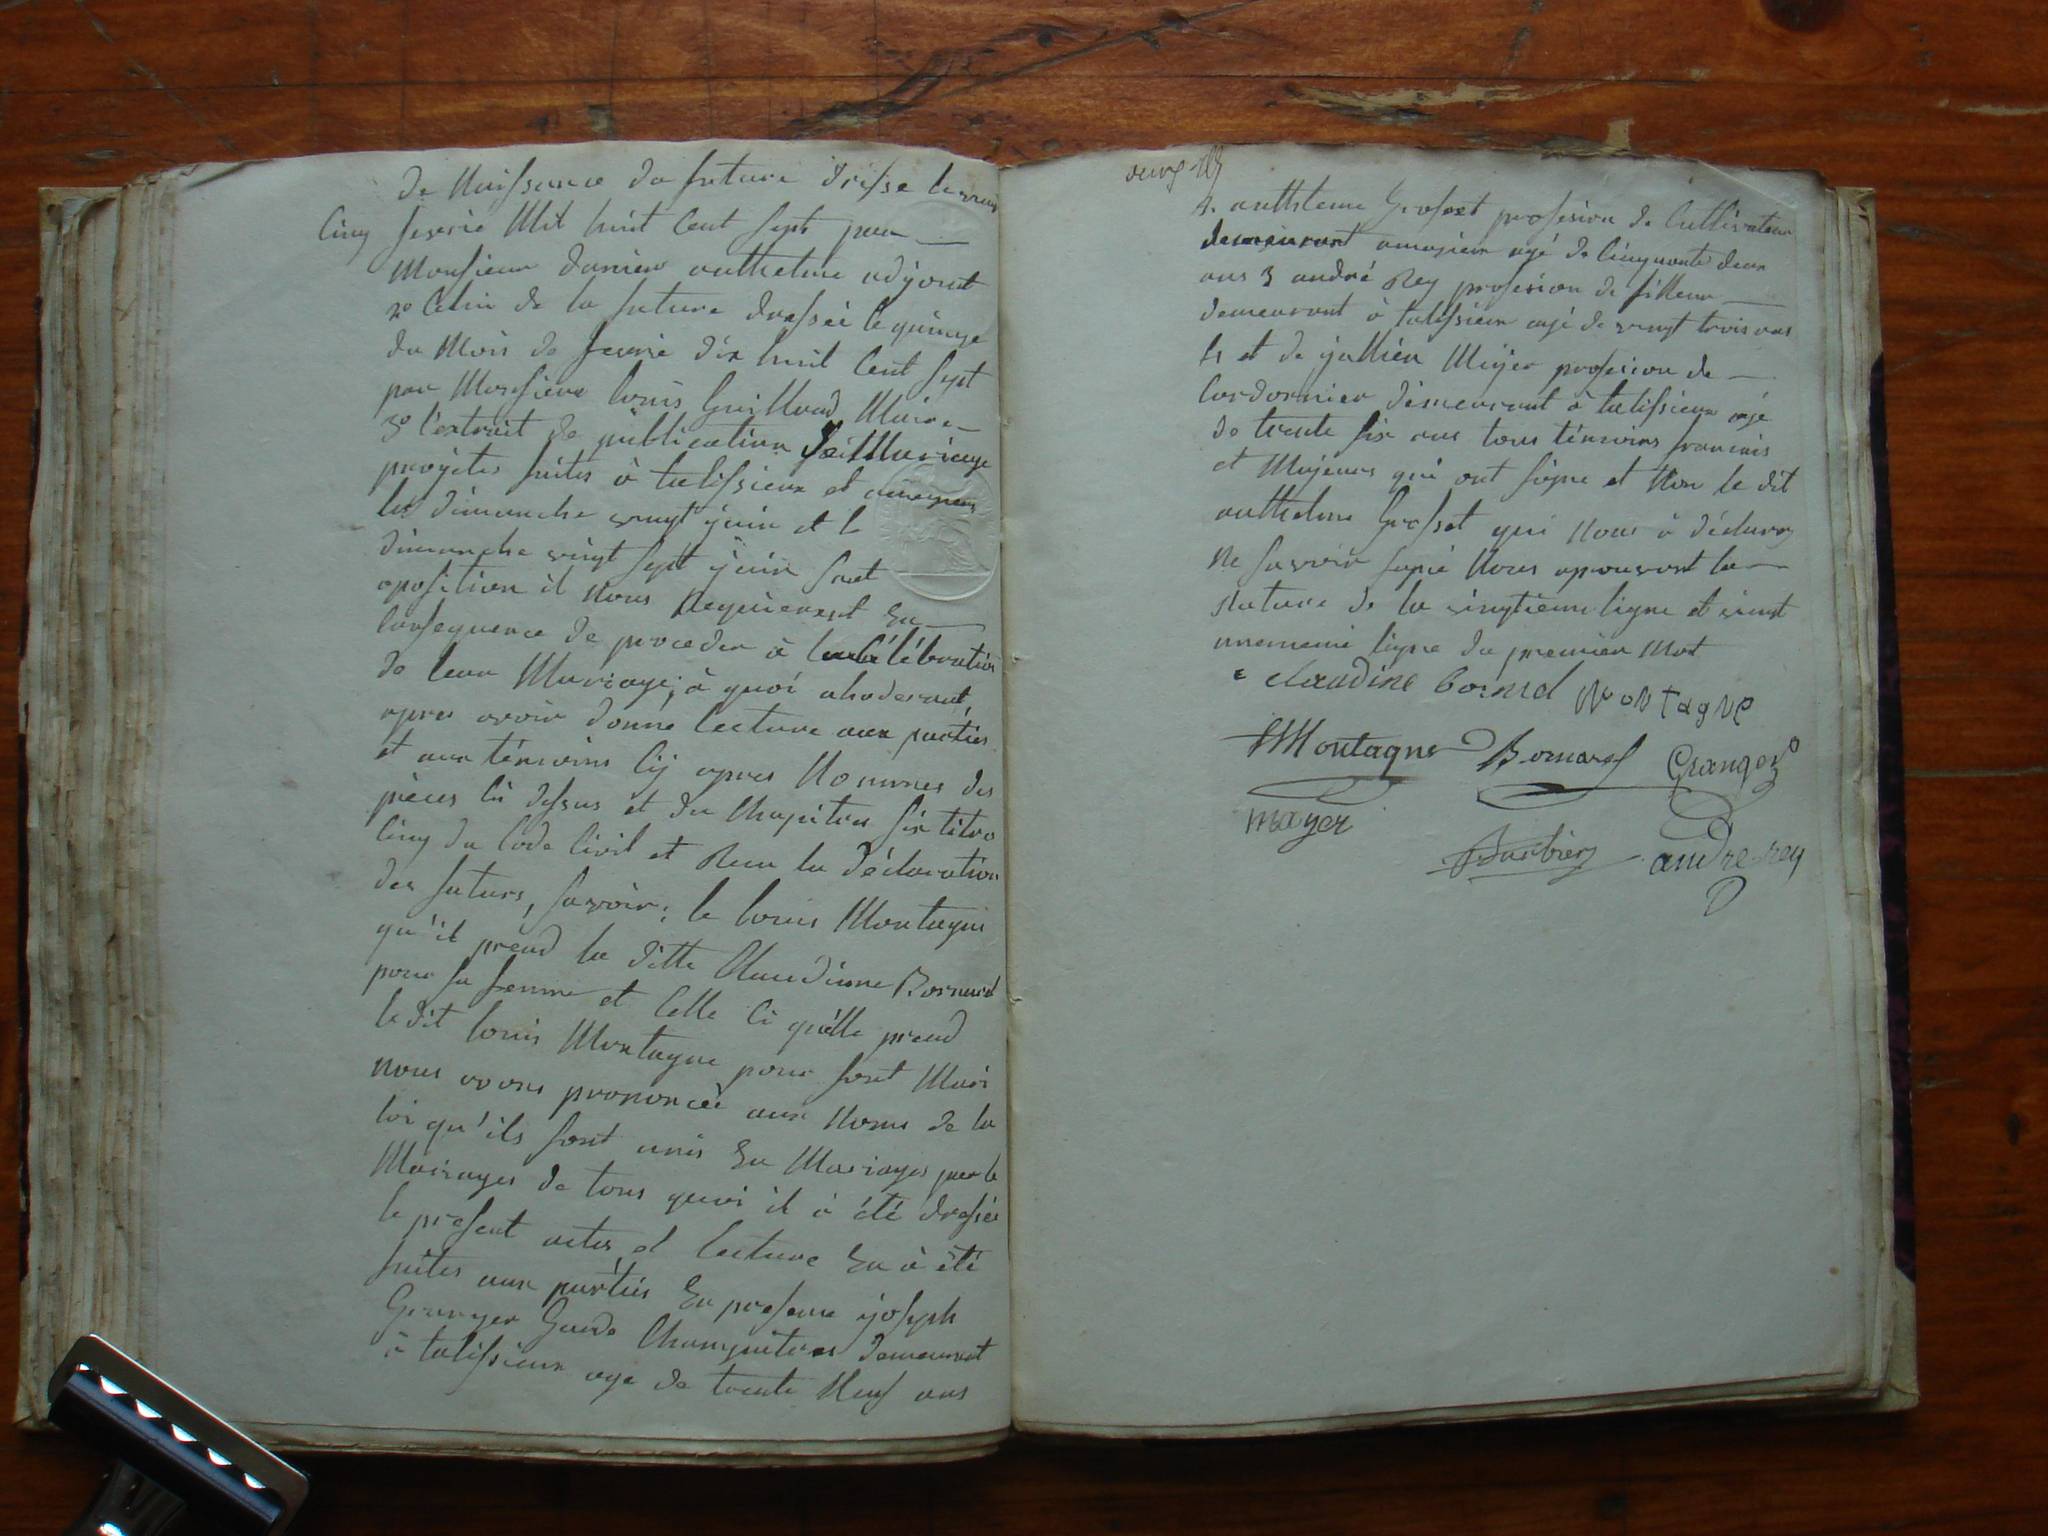 de Naissance du future drésse le vingt
Cinq fevrié Mil huit Cent sept par
Monsieur danier anthelme adjoint
2° Celui de la future dressée le quinze
du Mois de fevrié dix huit Cent sept
par Monsieur louis Guillaud Maire
3° l'extrait de publication de Mariage
projétés faites à talissieux et
les dimanche vingt juin et le
dimanche vingt sept juin sant
oposition il nous Requierent En
Conséquence de proceder à la Célébration
de leur Mariage, à quoi
apres avoir donné lecture aux parties
et aux témoins Cy apres Nommes des
pièces Ci dessus et du Chapitre six titre
Cinq du Code Civil et Recu la déclaration
des futurs, savoir; le louis Montagne
qu'il prend la ditte Claudine Bornard
pour sa femme et Celle Ci qu'elle prend
le dit louis Montagne pour sont Mari
nous avons prononcée aux Noms de la
loi qu'ils sont unis En Mariages par le
Mariages de tous quoi il à été dressés
le present actes et lecture En à été
faites aux parties En presence joseph
Granger Garde Champêtres demeurant
à talissieux age de trente Neuf ans
anthleme Grosset profesion de Cultivateur
demeurant age de Cinquante deux
ans 3 andré Rey profesion de
demeurant à talissieux agé de vingt trois ans
4 et de jullien Mäyer profesion de
Cordornier démeurant à talissieux agé
de trente six ans tous témoins francais
et Majeurs qui ont signe et Non le dit
anthelme Grosset qui Nous à déclarez
Ne savoir signé Nous aprouvont la
rature de la vingtieme ligne et vient
unememe ligne du premier Mot
claudine bornard Montagne
Montagne Bornard Granger
mayer
Barbier andre rey